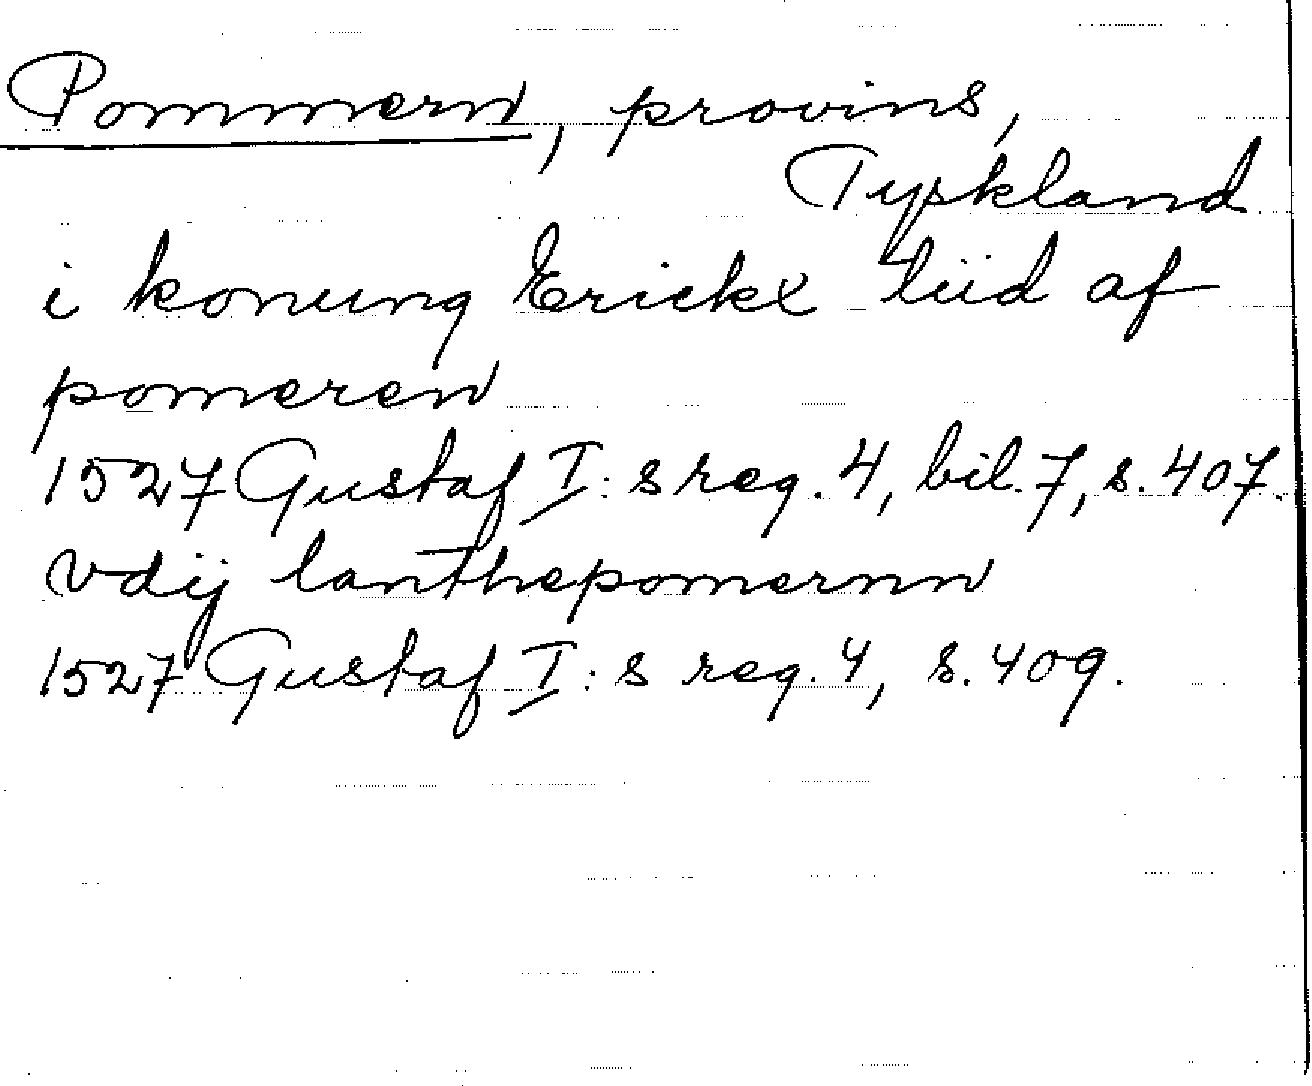 Pommern, provins,
Tyskland
i konung Erickx tiid af
pomeren
1527 Gustaf I:s reg. 4, bil. 7, s. 407.
vdij lanthepomernn
1527 Gustaf I:s reg. 4, s. 409.